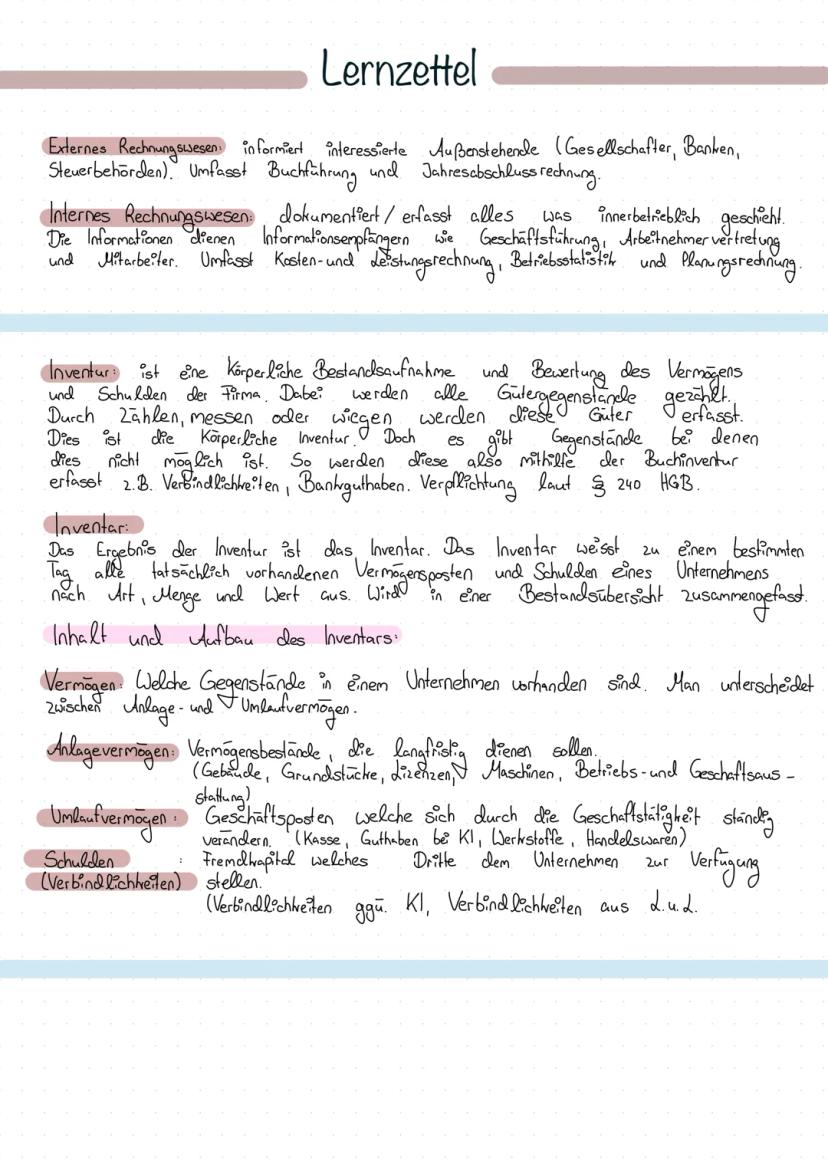 Lernzettel
Externes Rechnungswesen: informiert interessierte Außenstehende (Gesellschafter, Banken,
Steuerbehörden). Umfasst Buchführung und Jahresabschlussrechnung.
Internes Rechnungswesen: dokumentiert/erfasst alles was innerbetrieblich geschieht.
Die Informationen dienen Informationsempfängern wie Geschäftsführung, Arbeitnehmervertretung
und Mitarbeiter. Umfasst Kosten- und Leistungsrechnung, Betriebsstatistik und Planungsrechnung.
Inventur: ist eine Körperliche Bestandsaufnahme und Bewertung des Vermögens
und Schulden der Firma. Dabei werden alle Gütergegenstände gezählt.
Durch Zählen, messen oder wiegen werden diese Güter erfasst.
Dies ist die Körperliche Inventur. Doch es gibt Gegenstände bei denen
dies nicht möglich ist. So werden diese also mithilfe der Buchinventur
erfasst z.B. Verbindlichkeiten, Bankguthaben. Verpflichtung laut § 240 HGB.
Inventar:
Das Ergebnis der Inventur ist das Inventar. Das Inventar weisst zu einem bestimmten
Tag alle tatsächlich vorhandenen Vermögensposten und Schulden eines Unternehmens
nach Art, Menge und Wert aus. Wird in einer Bestandsübersicht zusammengefasst.
Inhalt und Aufbau des Inventars:
Vermögen: Welche Gegenstände in einem Unternehmen vorhanden sind. Man unterscheidet
zwischen Anlage- und Umlaufvermögen.
Anlagevermögen: Vermögensbestände, die langfristig dienen sollen.
(Gebäude, Grundstücke, Lizenzen, Maschinen, Betriebs- und Geschäftsaus-
stattung)
Umlaufvermögen: Geschäftsposten welche sich durch die Geschäftstätigkeit ständig
verändern. (Kasse, Guthaben bei KI, Werkstoffe, Handelswaren)
Schulden : Fremdkapital welches Dritte dem Unternehmen zur Verfügung
(Verbindlichkeiten) stellen.
(Verbindlichkeiten ggü. KI, Verbindlichkeiten aus L.u.L.